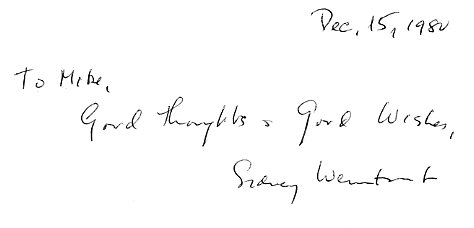 Dec. 15, 1980
To Mike,
Good thoughts & Good Wishes,
Sidney Weintraub